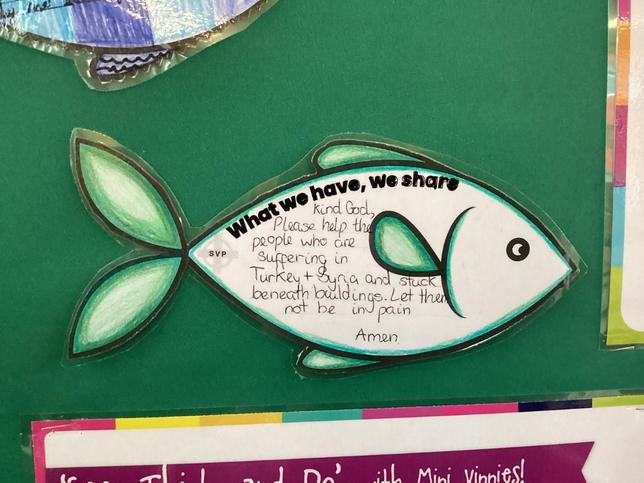 What we have, we share
kind God,
Please help the
people who are
suffering in
Turkey + Syria and stuck
beneath buildings. Let them
not be in pain
Amen
SVP
'See, Think and Do' with Mini Vinnies!